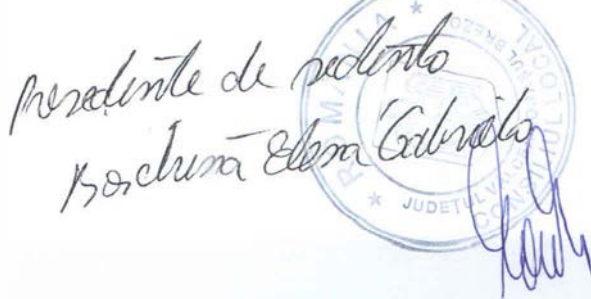 Presedinte de sedinta
Elena Gabriela
ROMANIA
JUDETUL
CONSILIUL LOCAL